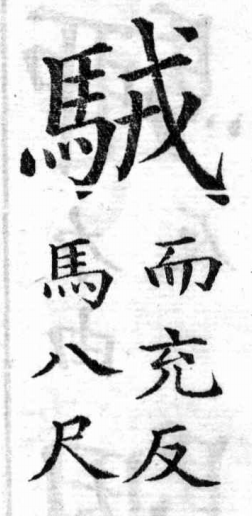 駥
而充反
馬八尺